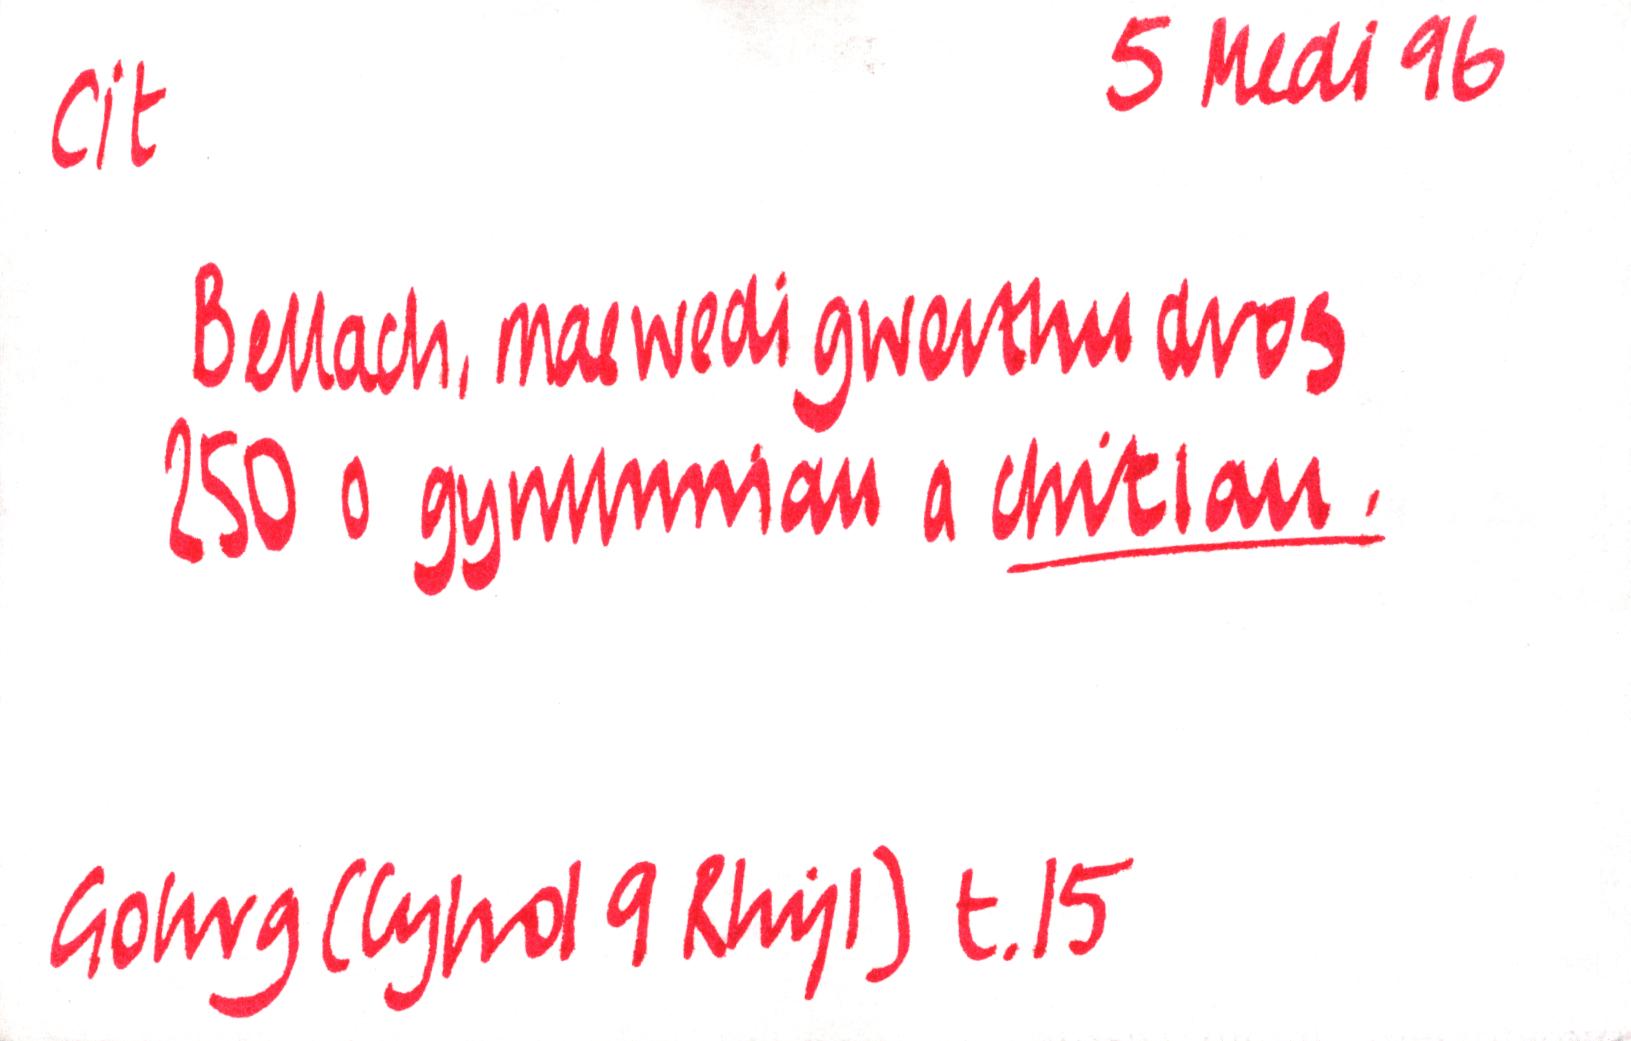 Cit
5 Medi 96
Bellach, mae wedi gwerthu dros
250 o gynlluniau a chitiau.
(Cyfrol 9 Rhif 1) t.15